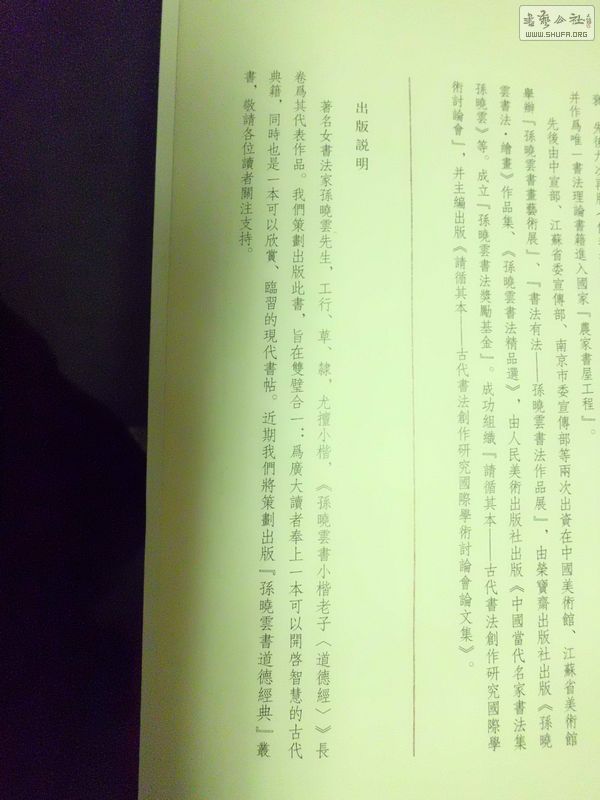 并作爲唯一書法理論書籍進入國家『農家書屋工程』。
先後由中宣部、江蘇省委宣傳部、南京市委宣傳部等兩次出資在中國美術館、江蘇省美術館
舉辦『孫曉雲書畫藝術展』、『書法有法——孫曉雲書法作品展』，由榮寶齋出版社出版《孫曉
雲書法·繪畫》作品集、《孫曉雲書法精品選》，由人民美術出版社出版《中國當代名家書法集
孫曉雲》等。成立『孫曉雲書法獎勵基金』。成功組織『請循其本——古代書法創作研究國際學
術討論會』，并主編出版《請循其本——古代書法創作研究國際學術討論會論文集》。
出版説明
著名女書法家孫曉雲先生，工行、草、隸，尤擅小楷，《孫曉雲書小楷老子〈道德經〉》長
卷爲其代表作品。我們策劃出版此書，旨在雙璧合一：爲廣大讀者奉上一本可以開啓智慧的古代
典籍，同時也是一本可以欣賞、臨習的現代書帖。近期我們將策劃出版『孫曉雲書道德經典』叢
書，敬請各位讀者關注支持。
WWW.SHUFA.ORG